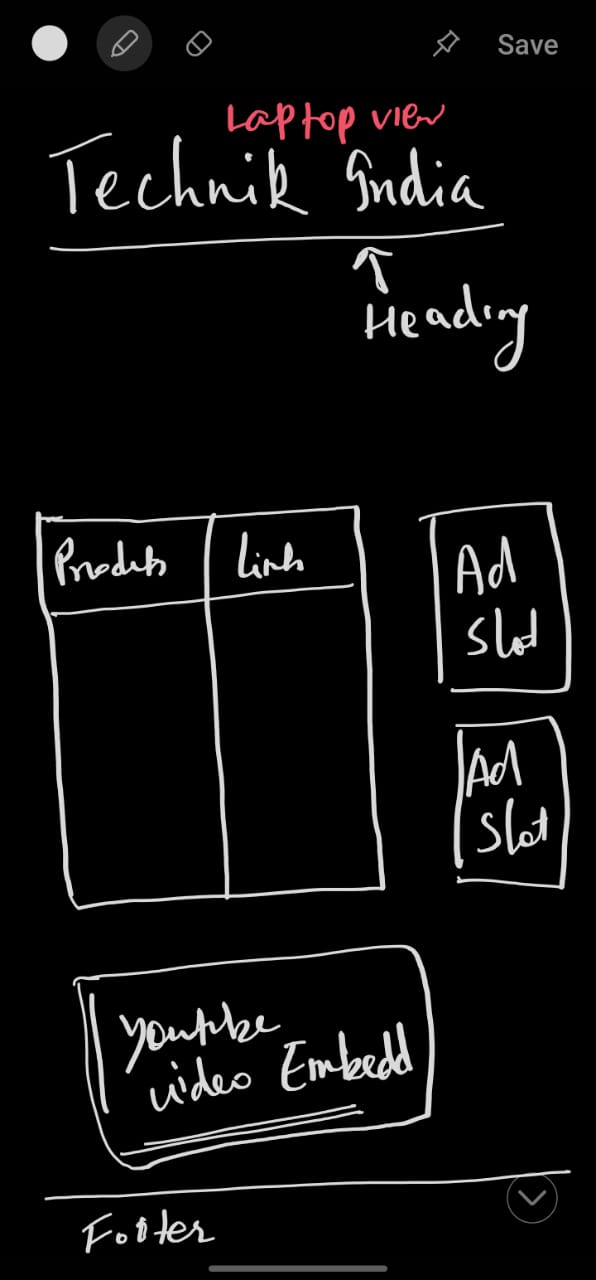 Save
Laptop view
Technik India
Heading
Products Links
Ad
Slot
Ad
Slot
Youtube
video Embedd
Footer